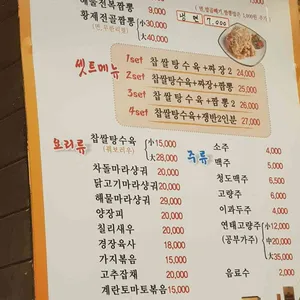 해물전복짬뽕 9,000
황제전골짬뽕 小30,000
大40,000
냉면 7,000
셋트메뉴
1set 찹쌀탕수육+짜장2 24,000
2set 찹쌀탕수육+짜장+짬뽕 25,000
3set 찹쌀탕수육+짬뽕2 26,000
4set 찹쌀탕수육+쟁반2인분 27,000
요리류
찹쌀탕수육 小15,000
(꿔보러우) 大28,000
차돌마라샹궈 20,000
닭고기마라샹궈 20,000
해물마라샹궈 20,000
양장피 20,000
칠리새우 20,000
경장육사 18,000
가지볶음 15,000
고추잡채 20,000
계란토마토볶음 15,000
주류
소주 4,000
맥주 4,000
청도맥주 6,500
고량주 4,000
이과두주 4,000
연태고량주 小12,000
(공부가주) 中20,000
大35,000
음료수 2,000